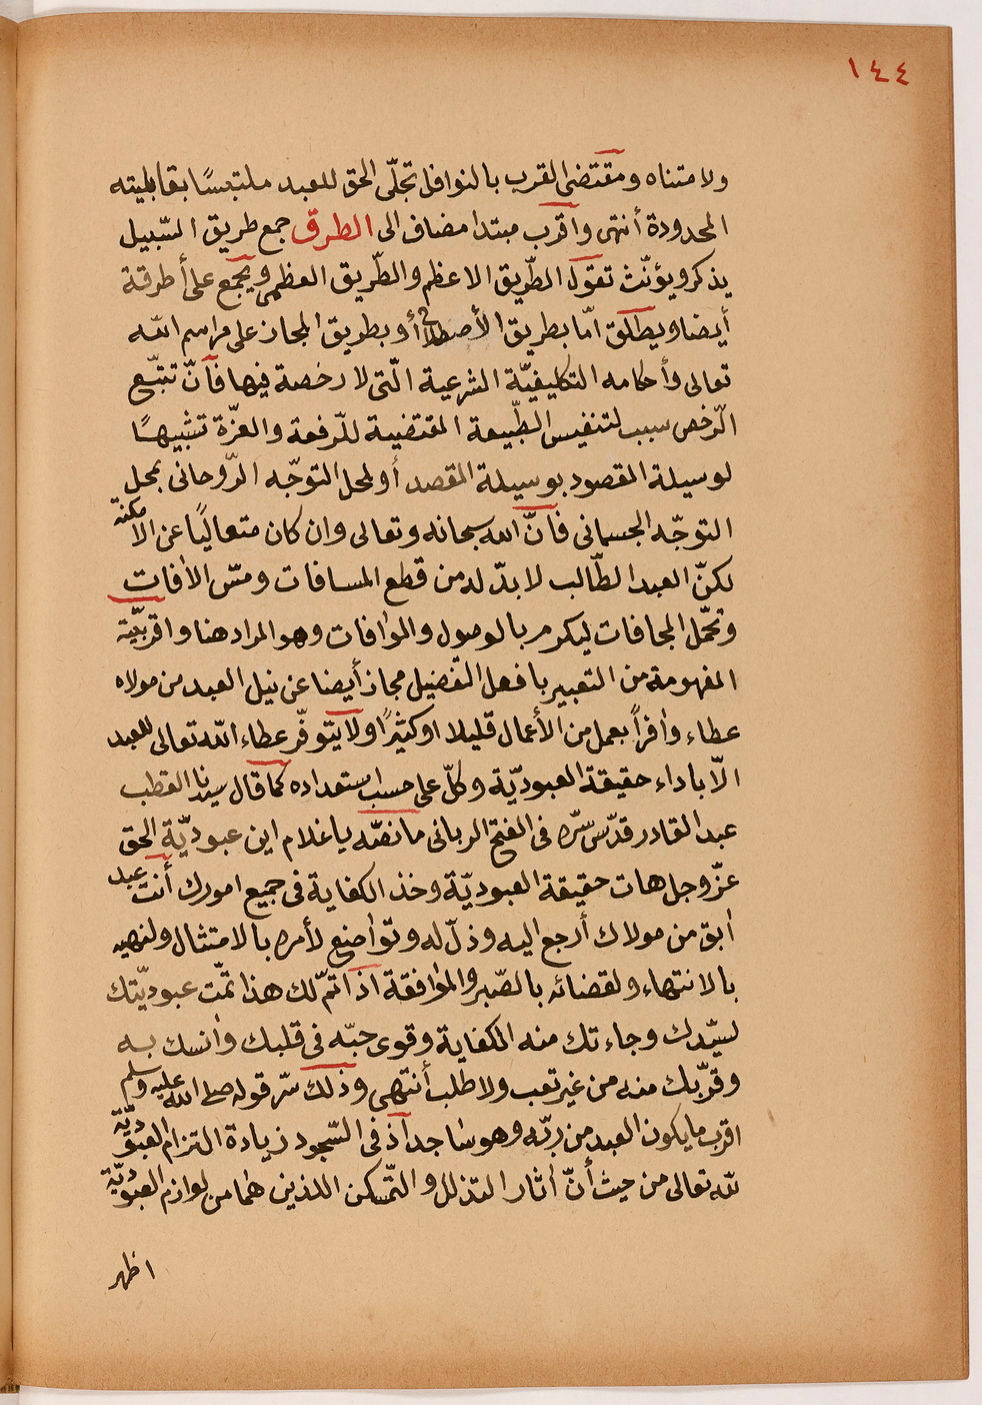 ١٤٤
ولا متناه ومقتضى القرب بالنوافل تجلّى الحق للعبد ملتبسًا بقابليته
المحدودة أنتهى واقرب مبتدا مضاف الى الطرق جمع طريق السّبيل
يذكر ويؤنّث تقول الطّريق الاعظم والطّريق العظمى ويجمع على أطرقة
أيضا ويطلق امّا بطريق الأصطلاح أو بطريق المجاز على مراسم الله
تعالى وأحكامه التكليفيّة الشرعية الّتى لا رخصة فيها فآنّ تتبّع
الرّخص سبب لتنفيس الطّبيعة المقتضية للرّفعة والعزّة تشبيهًا
لوسيلة المقصود بوسيلة المقصد أو لمحل التوجّه الرّوحانى بمحل
التوجّه الجسمانى فآنّ الله سبحانه وتعالى وان كان متعاليًا عن الامكنة
لكنّ العبد الطّالب لا بدّ له من قطع المسافات ومسّ الأفات
وتحمّل المجافات ليكرم بالوصول والموافات وهو المراد هنا واقربيّة
المفهومة من التعبير بافعل التفضيل مجاز أيضا عن نيل العبد من مولاه
عطاء وافراً بعمل من الأعمال قليلا او كثيرًا ولا يتوفّر عطاء الله تعالى للعبد
الّا باداء حقيقة العبوديّة وكلّ على حسب استعداده كما قال سيدنا القطب
عبد القادر قدّس سرّه فى الفتح الربانى ما نصّه يا غلام اين عبوديّة الحق
عزّ وجل هات حقيقة العبوديّة وخذ الكفاية فى جميع امورك أنت عبد
ابق من مولاك أرجع اليه وذلّ له وتواضع لأمره بالامتثال ولنهيه
بالانتهاء ولقضائه بالصّبر والموافقة اذا تمّ لك هذا تمّت عبوديّتك
لسيّدك وجاءتك منه الكفاية وقوى حبّه فى قلبك وانسك به
وقرّبك منه من غير تعب ولا طلب أنتهى وذلك سّر قوله صلى الله عليه وسلم
اقرب ما يكون العبد من ربّه وهو ساجد آذ فى السّجود زيادة التزام العبوديّة
لله تعالى من حيث أنّ اثار التذلل والتّمسكن اللذين هما من لوازم العبوديّة
اظهر